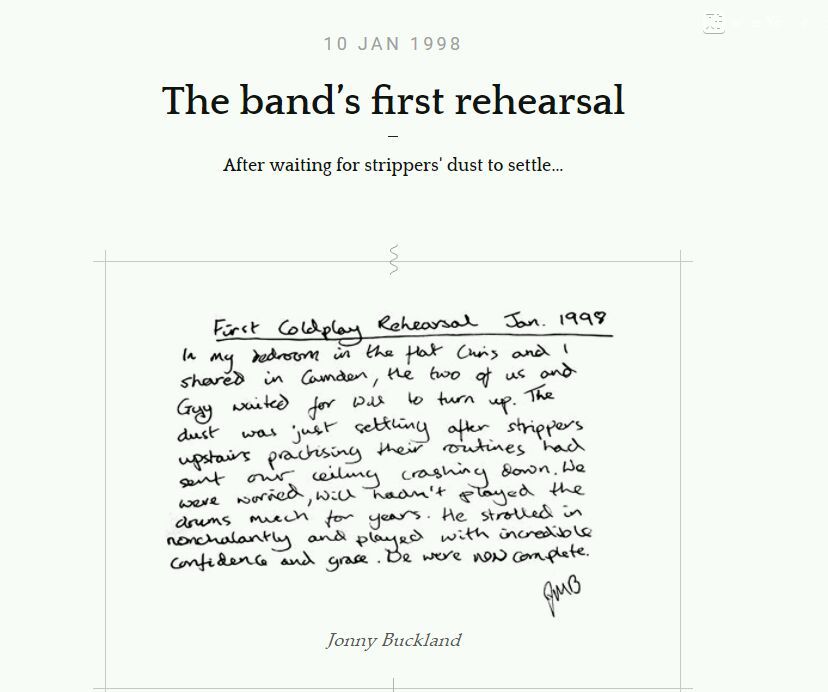 10 JAN 1998
The band's first rehearsal
After waiting for strippers' dust to settle...
First Coldplay Rehearsal Jan. 1998
In my bedroom in the flat Chris and I
shared in Camden, the two of us and
Guy waited for Will to turn up. The
dust was just settling after strippers
upstairs practising their routines had
sent our ceiling crashing down. We
were worried, Will hadn't played the
drums much for years. He strolled in
nonchalantly and played with incredible
confidence and grace. We were now complete.
JMB
Jonny Buckland